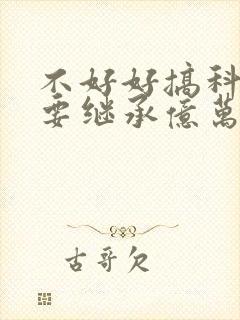 不好好搞科
要继承億萬
古哥欠